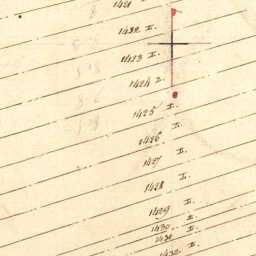 1421
1422 I.
1423 I.
1424 I.
1425 I.
1426 I.
1427 I.
1428 I.
1429 I.
1430 I.
1431 I.
1432 I.